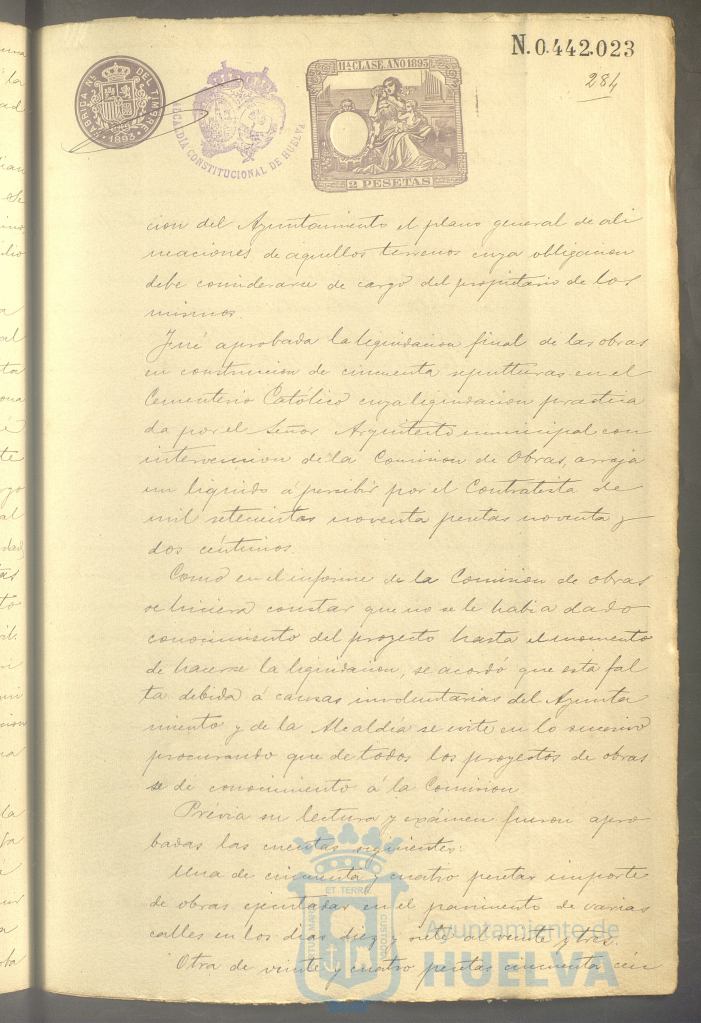 N.0.442.023
284
FABRICA NAL. DEL TIMBRE
1893
ALCALDIA CONSTITUCIONAL DE HUELVA
11ª CLASE. AÑO 1893
2 PESETAS
cion del Ayuntamiento el plano general de ali
neaciones de aquellos terrenos cuya obligacion
debe considerarse de cargo del propietario de los
mismos.
Fué aprobada la liquidacion final de las obras
en construccion de cincuenta sepulturas en el
Cementerio Católico cuya liquidacion practica
da por el Señor Arquitecto municipal con
intervencion de la Comision de Obras, arroja
un liquido á percibir por el Contratista de
mil setecientas noventa pesetas noventa y
dos céntimos.
Como en el informe de la Comision de obras
se hiciera constar que no se le habia dado
conocimiento del proyecto hasta el momento
de hacerse la liquidacion, se acordó que esta fal
ta debida á causas involuntarias del Ayunta
miento y de la Alcaldía se evite en lo sucesivo
procurando que de todos los proyectos de obras
se de conocimiento á la Comision
Prévia su lectura y exámen fueron apro
badas las cuentas siguientes:
Una de cincuenta y cuatro pesetas importe
de obras ejecutadas en el pavimento de varias
calles en los dias diez y siete al veinte y tres.
Otra de veinte y cuatro pesetas cincuenta cén
ET TERRA
CUSTODIA
Ayuntamiento de
HUELVA